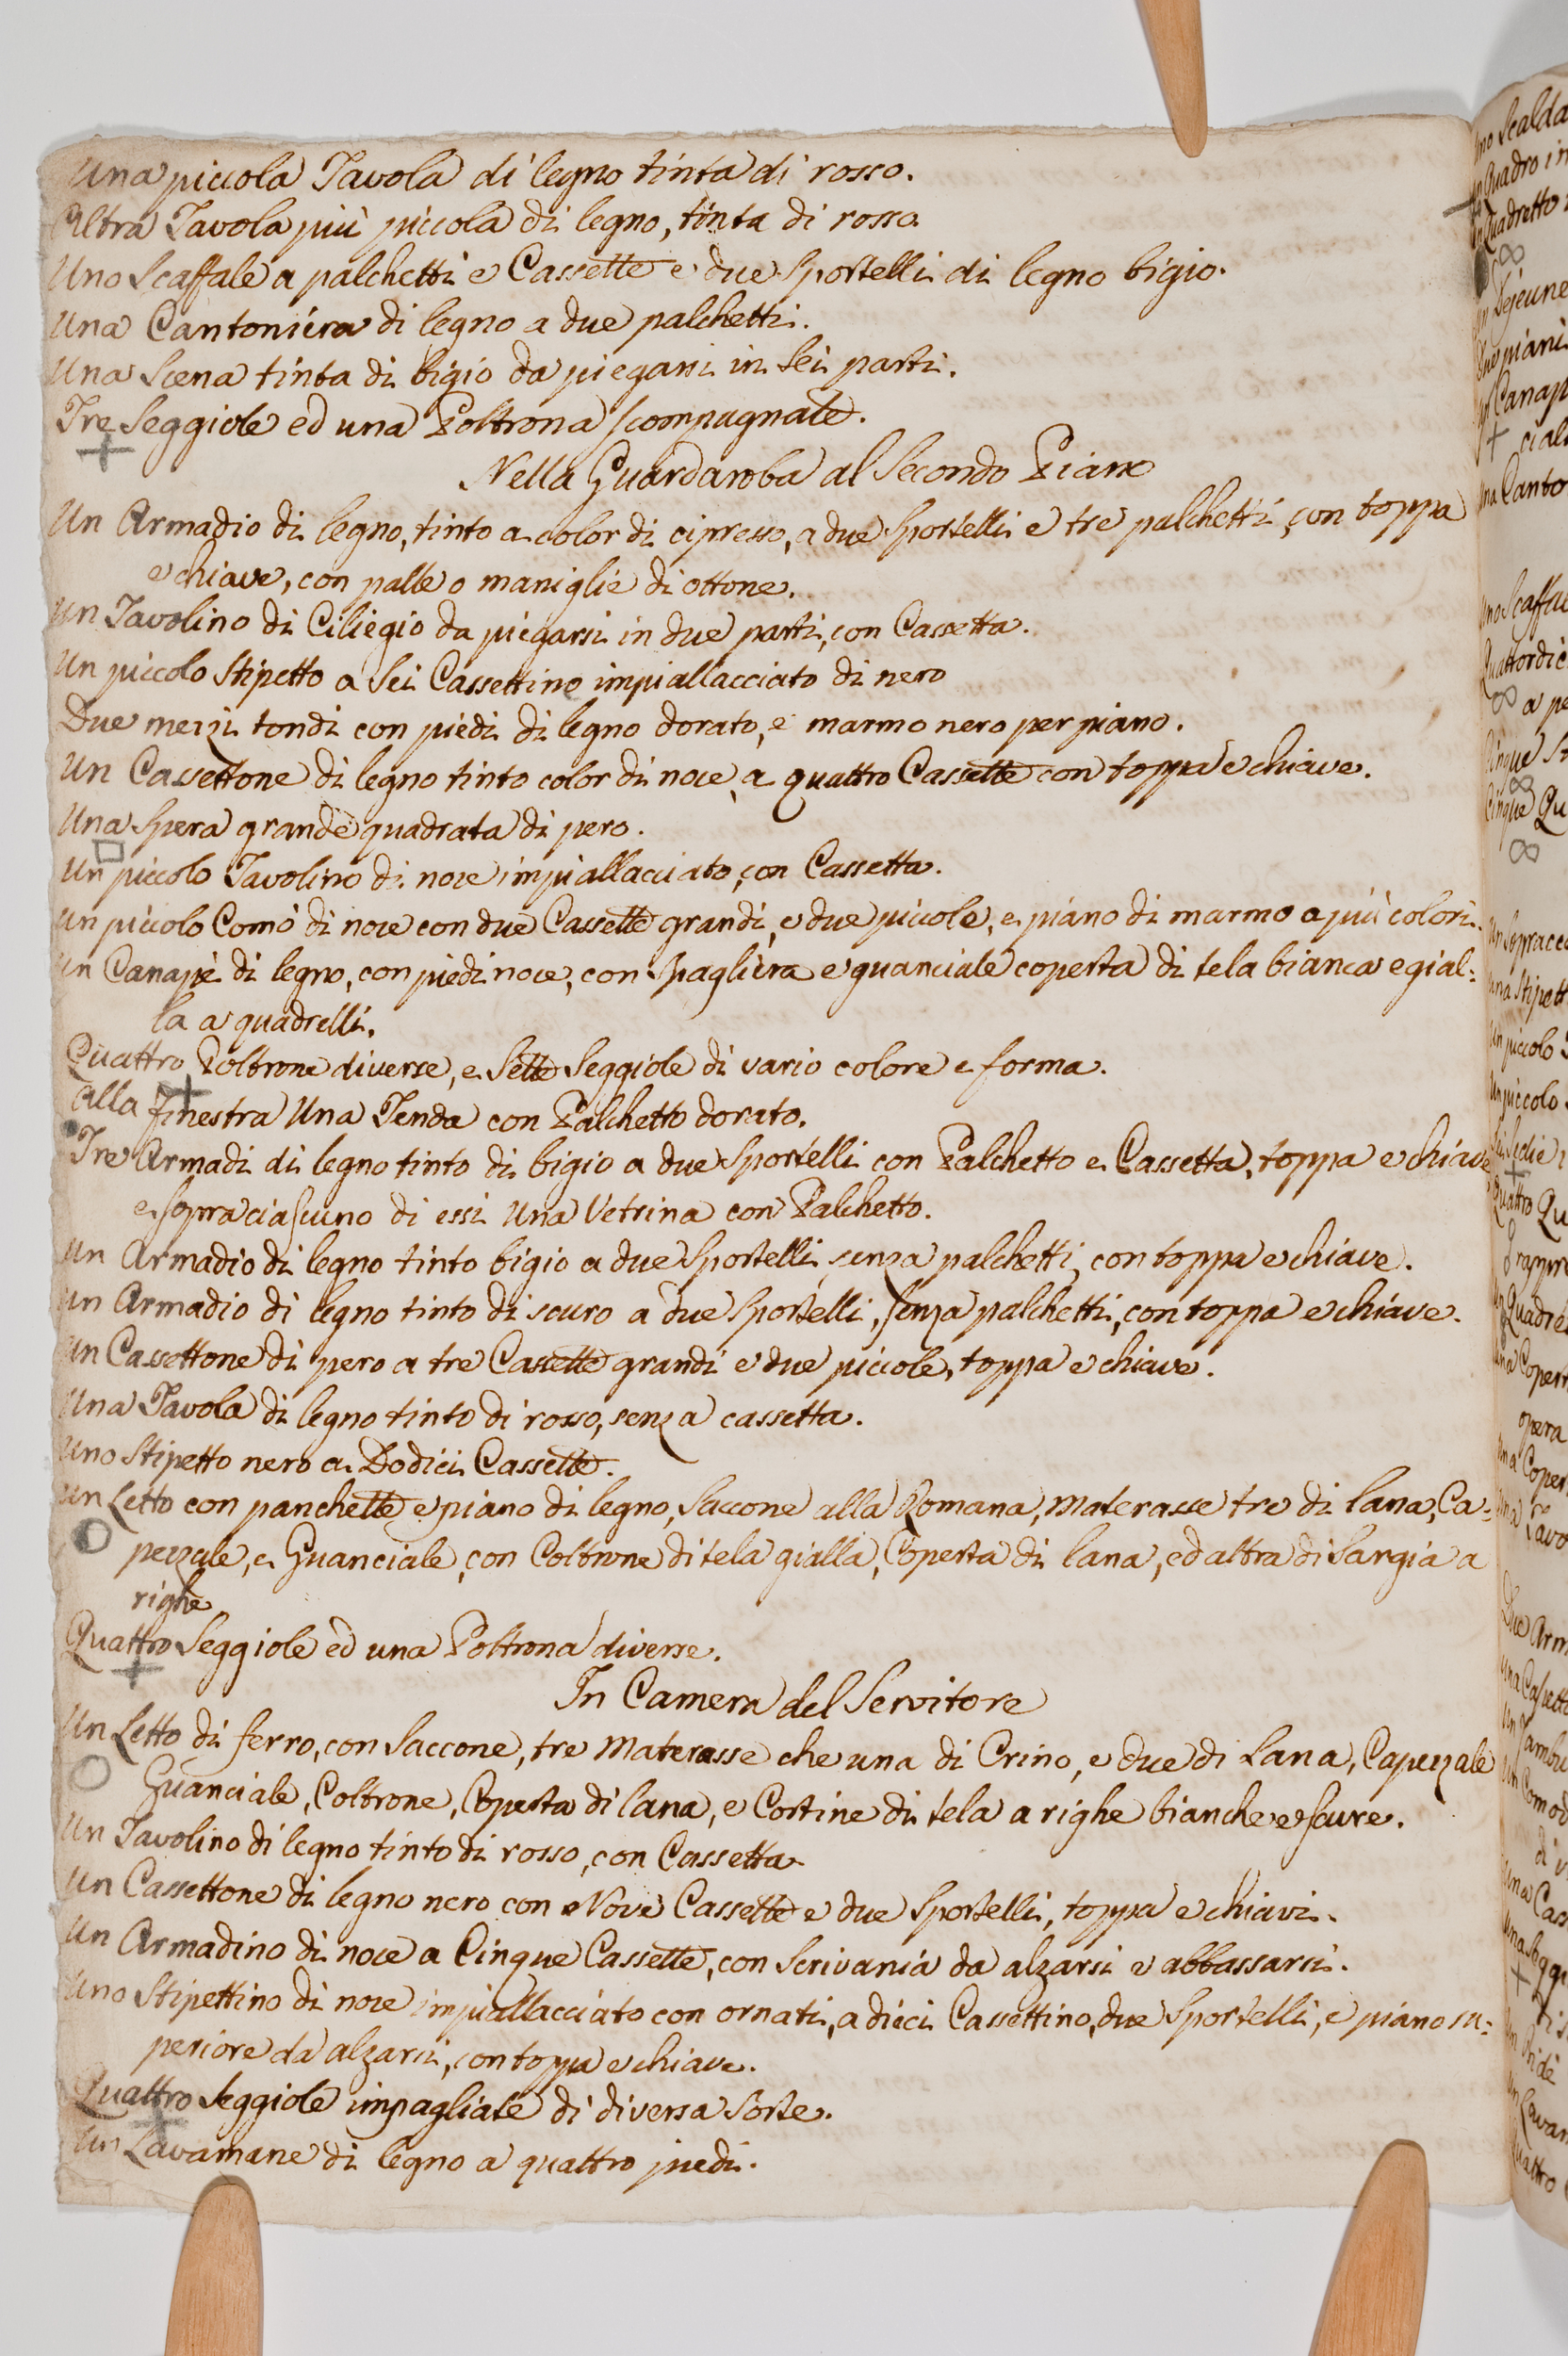 Una piccola Tavola di legno tinta di rosso.
Altra Tavola più piccola di legno, tinta di rosso.
Uno Scaffale a palchetti e Cassette e due Sportelli di legno bigio.
Una Cantoniera di legno a due palchetti.
Una Scena tinta di bigio da piegarsi in Sei parti.
Tre Seggiole ed una Poltrona scompagnate.
Nella Guardaroba al Secondo Piano
Un Armadio di legno, tinto a color di cipresso, a due Sportelli e tre palchetti, con toppa
e chiave, con palle o maniglie di ottone.
Un Tavolino di Ciliegio da piegarsi in due parti, con Cassetta.
Un piccolo Stipetto a Sei Cassettino impiallacciato di nero
Due mezzi tondi con piedi di legno dorato, e marmo nero per piano.
Un Cassettone di legno tinto color di noce, a quattro Cassette con toppa e chiave.
Una Spera grande quadrata di pero.
Un piccolo Tavolino di noce impiallacciato, con Cassetta.
Un piccolo Comò di noce con due Cassette grandi, e due piccole, e piano di marmo a più colori.
Un Canapè di legno, con piedi noce, con Spagliera e guanciale coperta di tela bianca e gial=
la a quadrelli.
Quattro Poltrone diverse, e Sette Seggiole di vario colore e forma.
Alla finestra Una Tenda con Palchetto dorato.
Tre Armadi di legno tinto di bigio a due Sportelli con Palchetto e Cassetta, toppa e chiave
e sopra ciascuno di essi Una Vetrina con Palchetto.
Un Armadio di legno tinto bigio a due Sportelli, senza palchetti, con toppa e chiave.
Un Armadio di legno tinto di scuro a due Sportelli, senza palchetti, con toppa e chiave.
Un Cassettone di pero a tre Cassette grandi e due piccole, toppa e chiave.
Una Tavola di legno tinto di rosso, senza cassetta.
Uno Stipetto nero a Dodici Cassette.
Un Letto con panchette e piano di legno, Saccone alla Romana, Materasse tre di lana, Ca=
pezzale, e Guanciale, con Coltrone di tela gialla, Coperta di lana, ed altra di Sargia a
righe
Quattro Seggiole ed una Poltrona diverse.
In Camera del Servitore
Un Letto di ferro, con Saccone, tre Materasse che una di Crino, e due di Lana, Capezzale
Guanciale, Coltrone, Coperta di lana, e Cortine di tela a righe bianche e scure.
Un Tavolino di legno tinto di rosso, con Cassetta
Un Cassettone di legno nero con Nove Cassette e due Sportelli, toppa e chiavi.
Un Armadino di noce a Cinque Cassette, con Scrivania da alzarsi e abbassarsi.
Uno Stipettino di noce impiallacciato con ornati, a dieci Cassettino, due Sportelli, e piano su=
periore da alzarsi, con toppa e chiave.
Quattro Seggiole impagliate di diversa Sorte.
Un Lavamane di legno a quattro piedi.